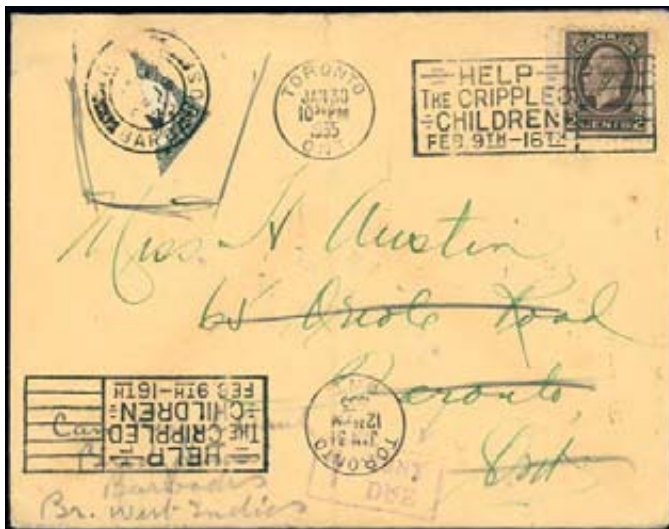 TORONTO
JAN 30
10 PM
1935
ONT
HELP
THE CRIPPLED
CHILDREN
FEB. 9TH-16TH
CANADA
CENTS
Miss. H. Austin
65 Oriole Road
Toronto
Ont
HELP
THE CRIPPLED
CHILDREN
FEB 9TH-16TH
TORONTO
JAN 31
12 PM
ONT
DUE
Barbados
Br. West Indies